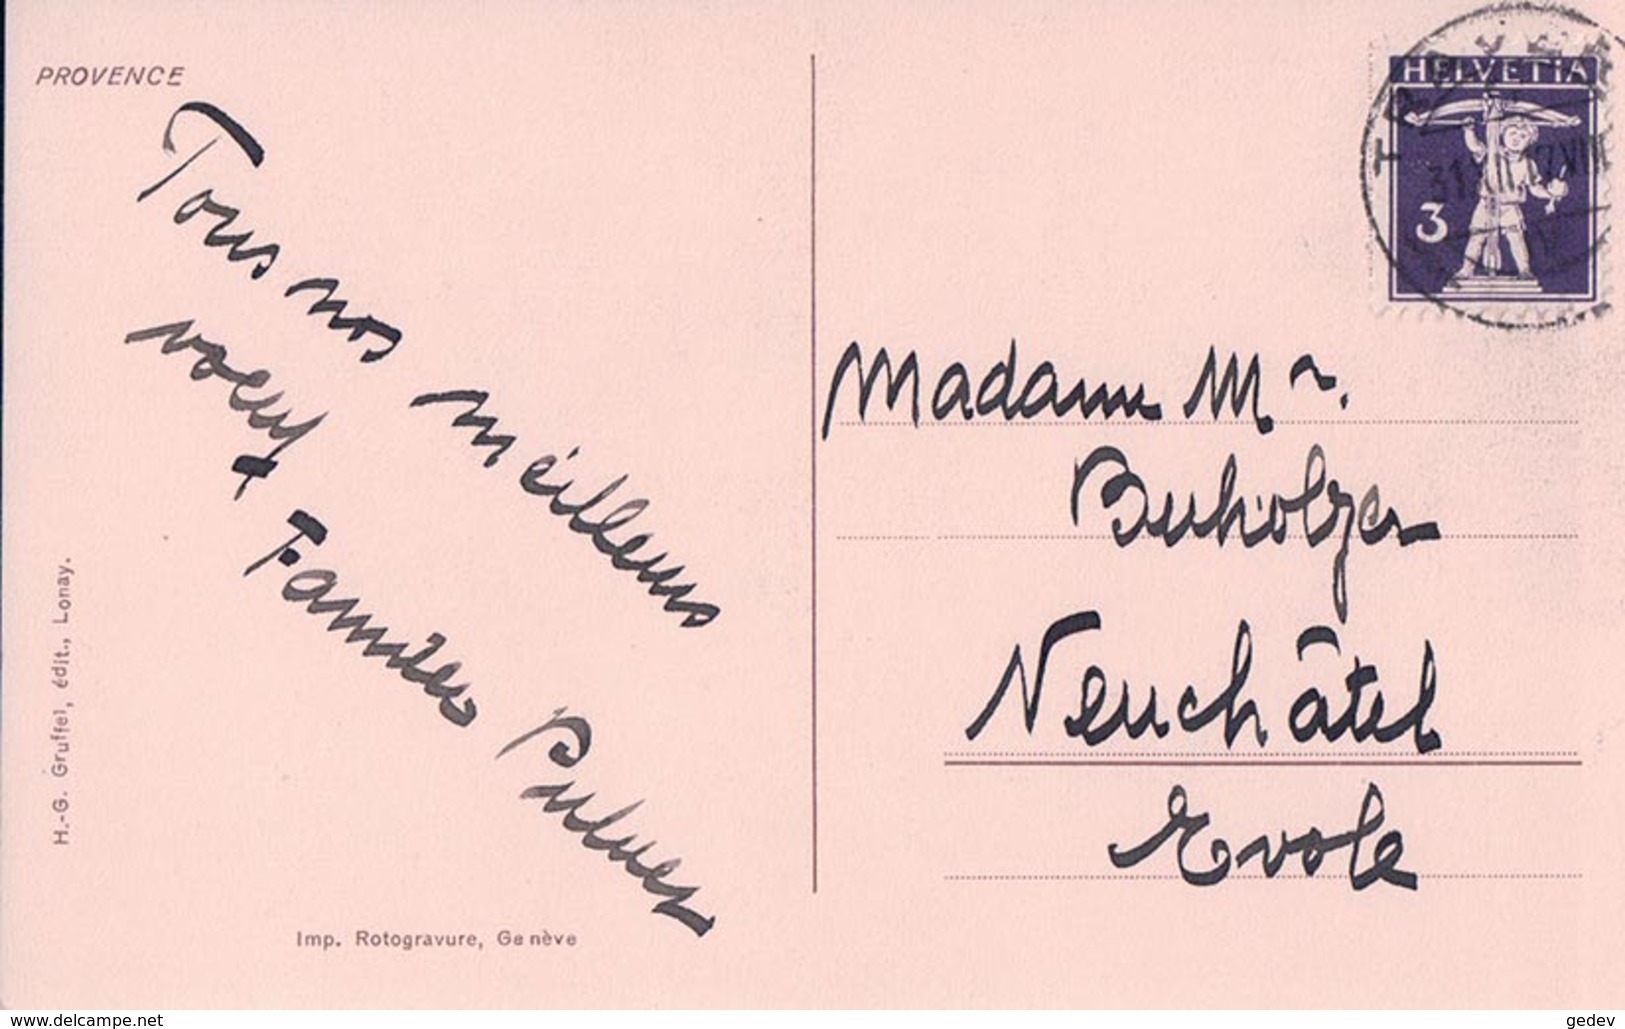 PROVENCE
Tous nos meilleurs
voeux
Famille
H.-G. Gruffel, édit., Lonay.
Imp. Rotogravure, Genève
HELVETIA
3
31 XII. 17 VIII
Madame Mr.
Buholzer
Neuchâtel
Evole
www.delcampe.net
gedev